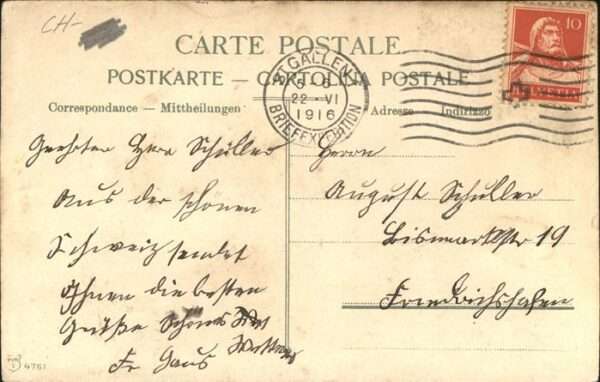 CH-
CARTE POSTALE.
POSTKARTE — CARTOLINA POSTALE
Correspondance — Mittheilungen
Adresse — Indirizzo
ST. GALLEN
5-6
22-VI
1916
BRIEFEXPEDITION
10
HELVETIA
Geehrter Herr Schuller
Aus der schönen
Schweiz sendet
Ihnen die besten
Grüße Schönes
Fr Gaus
Herrn
August Schuller
Bismarkstr 19
Friedrichshafen
4761